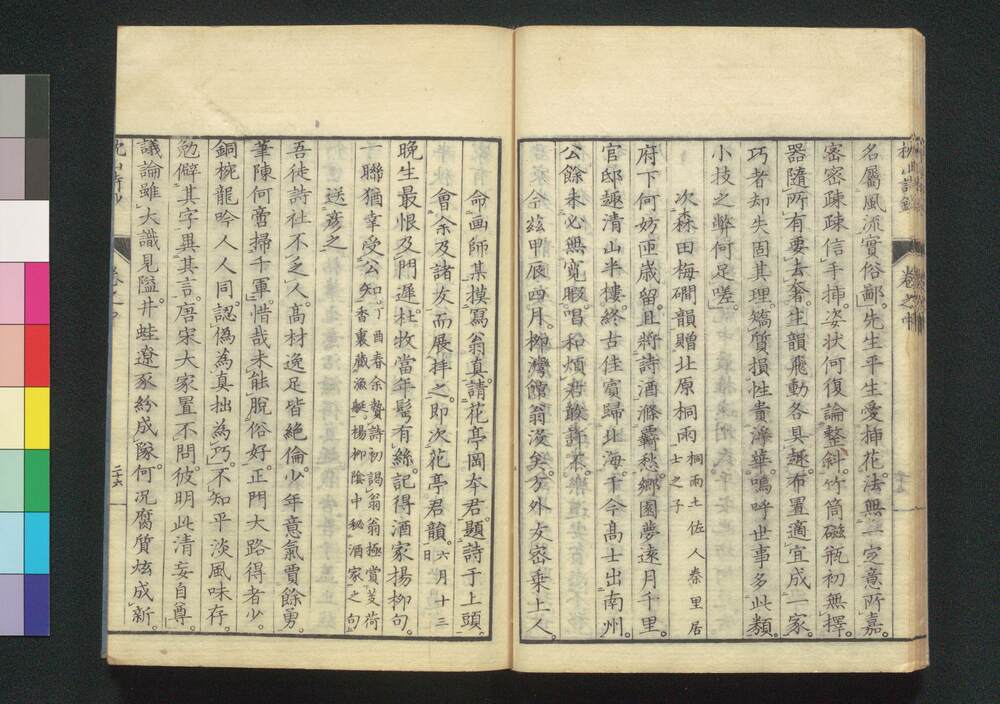 名屬風流實俗鄙先生平生愛挿花法無一定意所嘉
密密疎疎信手挿姿状何復論整斜竹筒磁瓶初無擇
器隨所有要去奢生韻飛動各具趣布置適宜成一家
巧者却失固其理矯質損性貴浮華嗚呼世事多此類
小技之弊何足嗟
次森田梅礀韻贈北原桐雨 桐雨土佐人秦里居
士之子
府下何妨匝歳留且將詩酒滌覊愁郷園夢遠月千里
官邸趣清山半樓終古佳賓歸北海于今髙士出南州
公餘未必無寛暇唱和煩君敢許不
今茲甲辰四月柳灣館翁没矣方外友密乗上人
命画師某摸寫翁真請花亭岡本君題詩于上頭
會余及諸友而展拝之即次花亭君韻 六月十三
日
晚生最恨及門遲杜牧當年鬢有絲記得酒家楊柳句
一聯猶幸受公知 丁酉春余贄詩初謁翁翁極賞芰荷
香裏藏漁艇楊柳陰中秘酒家之句
送彦之
吾徒詩社不乏人髙材逸足皆絶倫少年意氣賈餘勇
筆陳何啻掃千軍惜哉未能脱俗好正門大路得者少
銅椀龍吟人人同認偽為真拙為巧不知平淡風味存
勉僻其字異其言唐宋大家置不問彼明此清妄自尊
議論雖大識見隘井蛙遼豕紛成隊何况腐質炫成新
卷之中
二十六